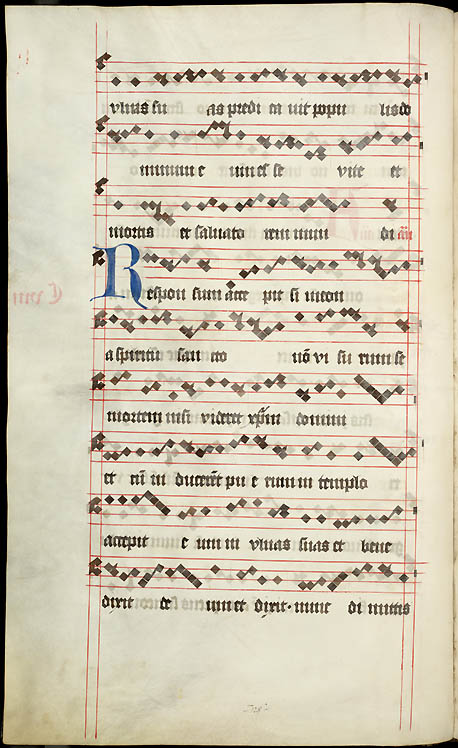 vlnas su as predi ca uit popu lis do
minum e um es se vite et
mortis et saluato rem mun di
Respon sum acce pit si meon
a spiritu san cto nō vi su rum se
mortem nisi videret xp̄m domini
et cū in ducerēt pu e rum in templo
accepit e um in vlnas suas et bene
dixit de um et dixit nunc di mittis